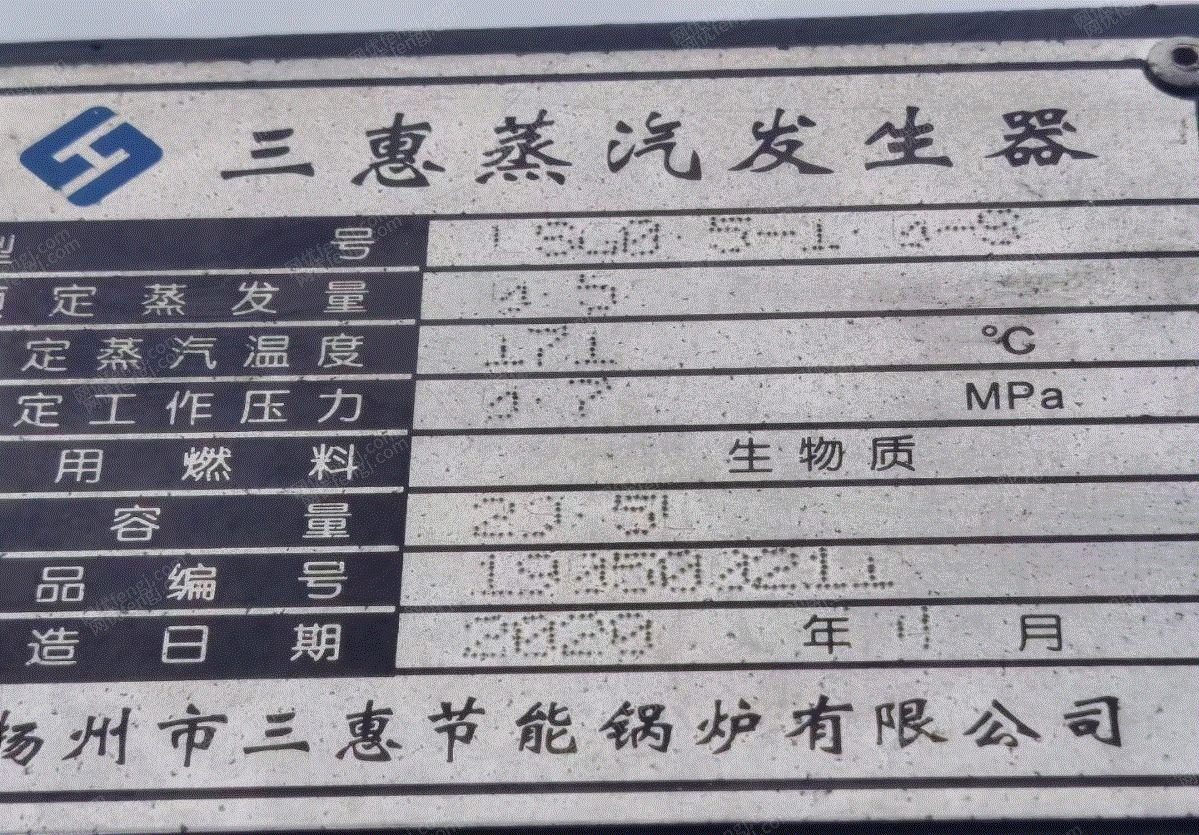 三惠蒸汽发生器
号
定蒸发量 0.5
定蒸汽温度 171 ℃
定工作压力 0.7 MPa
用燃料 生物质
容量
品编号
造日期 2020 年 4 月
扬州市三惠节能锅炉有限公司